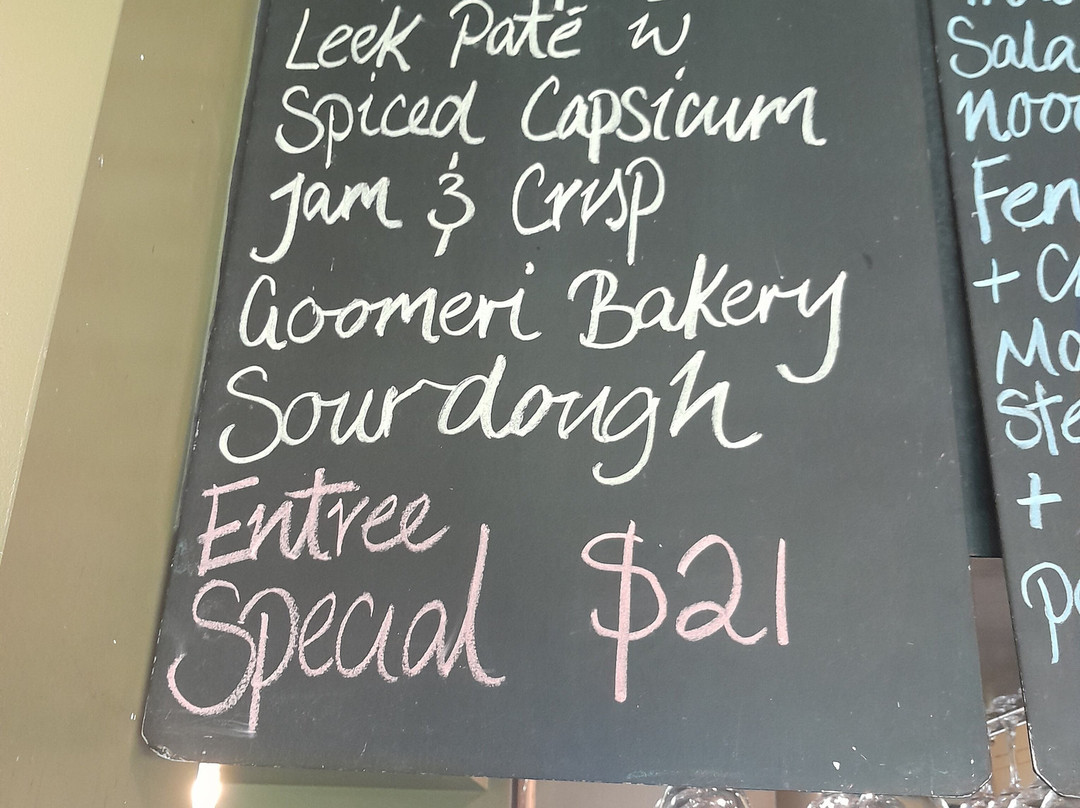 Leek Paté w
Spiced Capsicum
Jam & Crisp
Goomeri Bakery
Sourdough
Entree
Special $21
Sala
noo
Fen
+ C
Mo
Ste
+